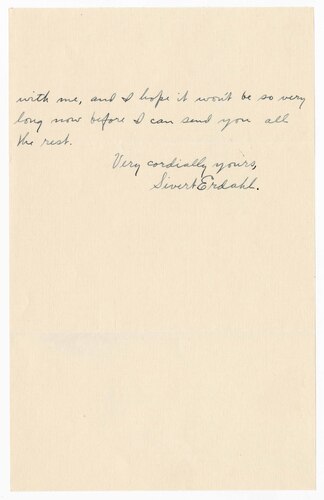 with me, and I hope it won't be so very
long now before I can send you all
the rest.
Very cordially yours,
Sivert Erdahl.